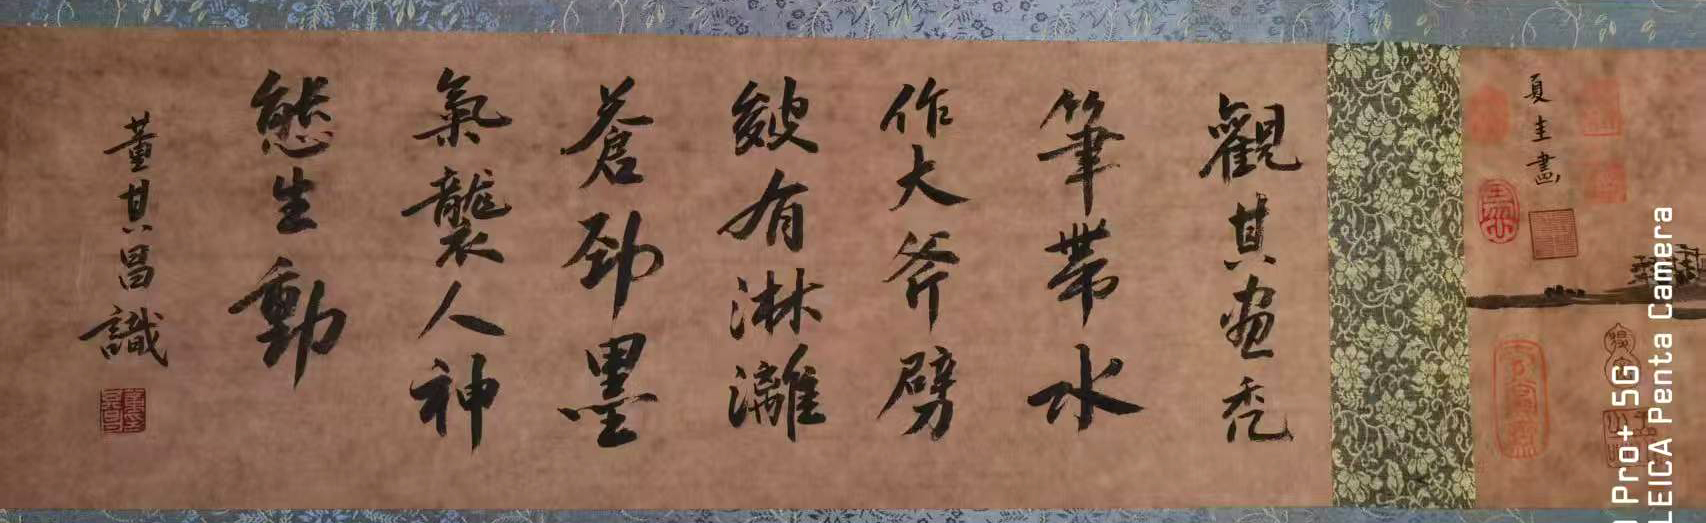 夏圭畫
觀其画禿
筆帶水
作大斧劈
皴有淋漓
蒼劲墨
氣襲人神
態生動
董其昌識
Pro+ 5G
LEICA Penta Camera